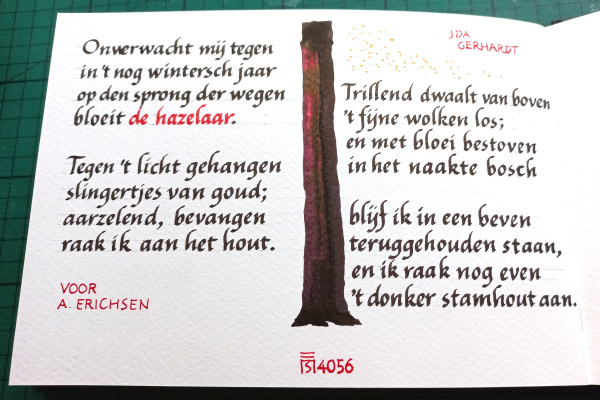 Onverwacht mij tegen
in 't nog wintersch jaar
op den sprong der wegen
bloeit de hazelaar.
Tegen 't licht gehangen
slingertjes van goud;
aarzelend, bevangen
raak ik aan het hout.
VOOR
A. ERICHSEN
IDA
GERHARDT
Trillend dwaalt van boven
't fijne wolken los;
en met bloei bestoven
in het naakte bosch
blijf ik in een beven
teruggehouden staan,
en ik raak nog even
't donker stamhout aan.
4056